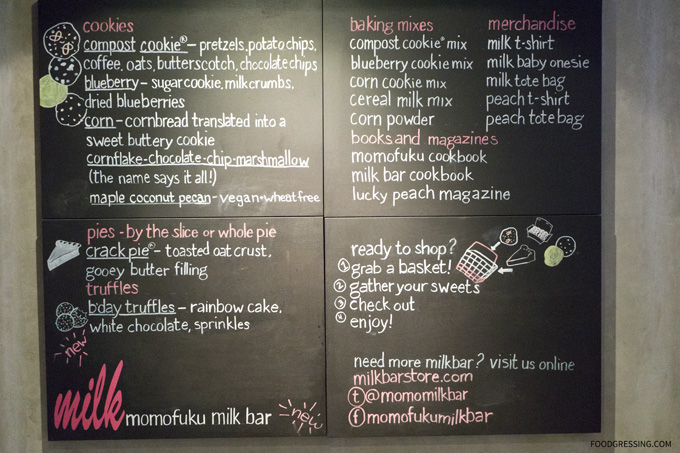 cookies
compost cookie® – pretzels, potato chips,
coffee, oats, butterscotch, chocolate chips
blueberry – sugar cookie, milk crumbs,
dried blueberries
corn – cornbread translated into a
sweet buttery cookie
cornflake-chocolate-chip-marshmallow
(the name says it all!)
maple coconut pecan - vegan + wheat free
baking mixes
compost cookie® mix
blueberry cookie mix
corn cookie mix
cereal milk mix
corn powder
books and magazines
momofuku cookbook
milk bar cookbook
lucky peach magazine
merchandise
milk t-shirt
milk baby onesie
milk tote bag
peach t-shirt
peach tote bag
pies - by the slice or whole pie
crack pie® – toasted oat crust,
gooey butter filling
truffles
b'day truffles – rainbow cake,
white chocolate, sprinkles
new
milk momofuku milk bar
new
ready to shop?
1 grab a basket!
2 gather your sweets
3 check out
4 enjoy!
need more milkbar? visit us online
milkbarstore.com
t @momomilkbar
f momofukumilkbar
FOODGRESSING.COM